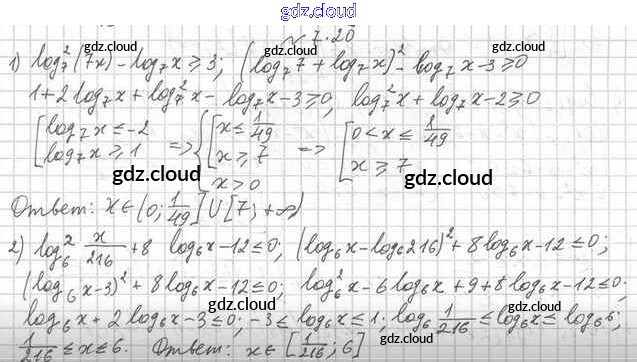 gdz.cloud
№ 7.20
gdz.cloud gdz.cloud
1) log₇²(7x) - log₇x ≥ 3; (log₇7 + log₇x)² - log₇x - 3 ≥ 0
1 + 2 log₇x + log₇²x - log₇x - 3 ≥ 0, log₇²x + log₇x - 2 ≥ 0
[log₇x ≤ -2 log₇x ≥ 1 => {[x ≤ 1/49 x ≥ 7 x > 0 => [0 < x ≤ 1/49 x ≥ 7
gdz.cloud gdz.cloud
Ответ: x ∈ (0; 1/49] ∪ [7; +∞)
gdz.cloud gdz.cloud
2) log₆² x/216 + 8 log₆x - 12 ≤ 0; (log₆x - log₆216)² + 8 log₆x - 12 ≤ 0;
(log₆x - 3)² + 8 log₆x - 12 ≤ 0; log₆²x - 6 log₆x + 9 + 8 log₆x - 12 ≤ 0;
gdz.cloud gdz.cloud
log₆x + 2 log₆x - 3 ≤ 0; -3 ≤ log₆x ≤ 1; log₆ 1/216 ≤ log₆x ≤ log₆6;
1/216 ≤ x ≤ 6. Ответ: x ∈ [1/216; 6]
gdz.cloud